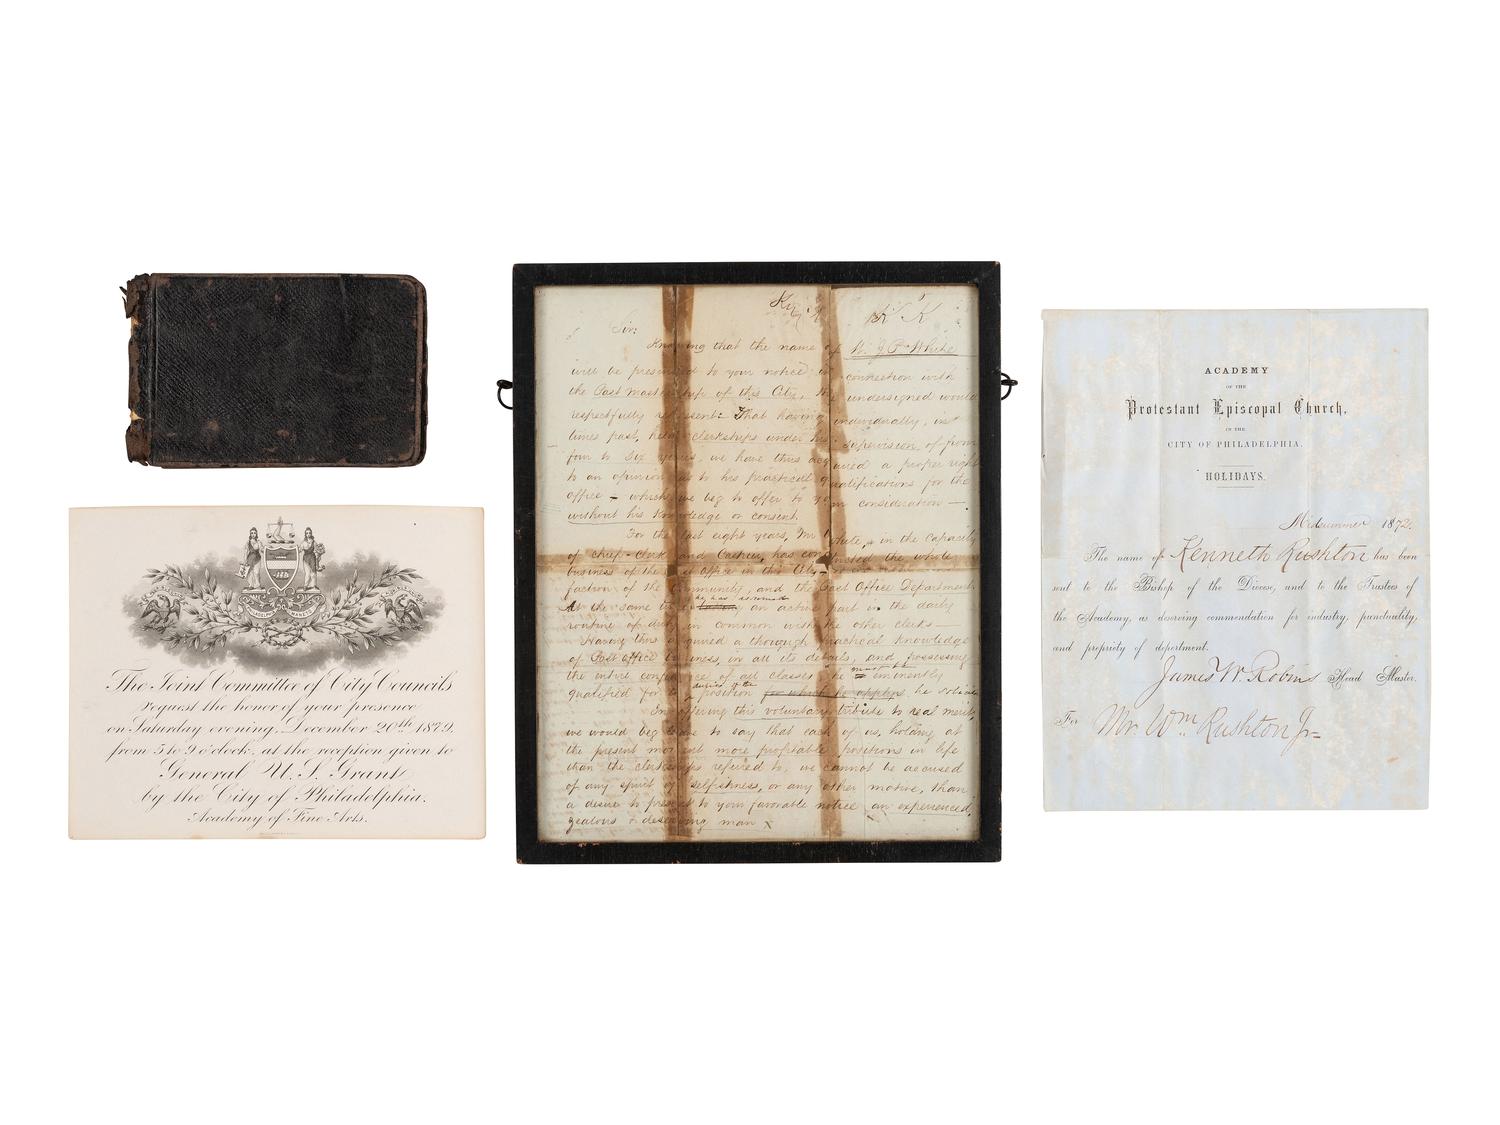 The Joint Committee of City Councils
request the honor of your presence
on Saturday evening, December 20th 1879,
from 5 to 9 o'clock, at the reception given to
General U. S. Grant
by the City of Philadelphia.
Academy of Fine Arts.
Sir:
Knowing that the name of W. J. P. White
will be presented to your notice in connection with
the Post mastership of this City, the undersigned would
respectfully represent: That having individually, in
times past, held clerkships under his supervision of from
four to six years, we have thus acquired a proper right
to an opinion as to his practical qualifications for the
office - which we beg to offer to your consideration —
without his knowledge or consent.
For the last eight years, Mr White, in the capacity
of chief-Clerk and Cashier, has conducted the whole
business of the office in this City,
faction of the community, and the Post Office Department
At the same time he has assumed an active part in the daily
routine of duty in common with the other clerks —
Having thus acquired a thorough practical knowledge
of Post office business, in all its details, and possessing
the entire confidence of all classes, he must be eminently
qualified for the position for which he applys he solicits
In offering this voluntary tribute to real merit,
we would beg leave to say that each of us, holding at
the present moment more profitable positions in life
than the clerkships refered to, we cannot be accused
of any spirit of selfishness, or any other motive, than
a desire to present to your favorable notice an experienced,
zealous & deserving man
ACADEMY
OF THE
Protestant Episcopal Church,
IN THE
CITY OF PHILADELPHIA.
HOLIDAYS.
Midsummer 1872.
The name of Kenneth Rushton has been
sent to the Bishop of the Diocese, and to the Trustees of
the Academy, as deserving commendation for industry, punctuality,
and propriety of deportment.
James W. Robins Head Master.
For Mr. Wm. Rushton Jr=